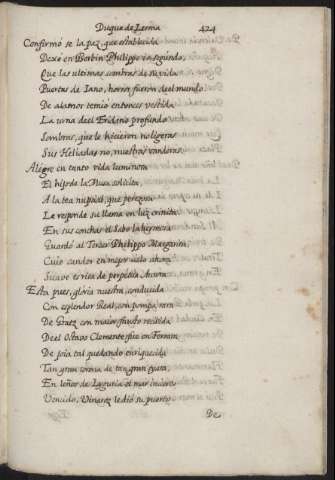 Duque de Lerma 424
Confirmó se la paz, que establecida
Dexó en Berbin Philippo ia segundo,
Que las ultimas sombras de su vida
Puertas de Iano, horror fueron del mundo
De alamos temió entonces vestida
La urna del Eridano profundo
Sombras, que le hicieron no ligeras
Sus Heliadas no, nuestras vanderas.
Alegre en tanto vida luminosa
El hijo de la Musa solicita
A la tea nupcial, que perezosa
Le responde su llama en luz crinita
En sus conchas el Sabo la hermosa
Guardó al Tercer Philippo Margarita,
Cuio candor en mejor cielo ahora
Suave es risa de perpetua Aurora
Esta pues, gloria nuestra, conducida
Con esplendor Real, con pompa rara
De Graez con maior fausto recibida
Del Octavo Clemente fue en Ferrara
De joia tal quedando enriquecida
Tan gran corona de tan gran tiara,
En leños de Liguria el mar incierto
Vencido, Vinaroz le dió su puerto.
De